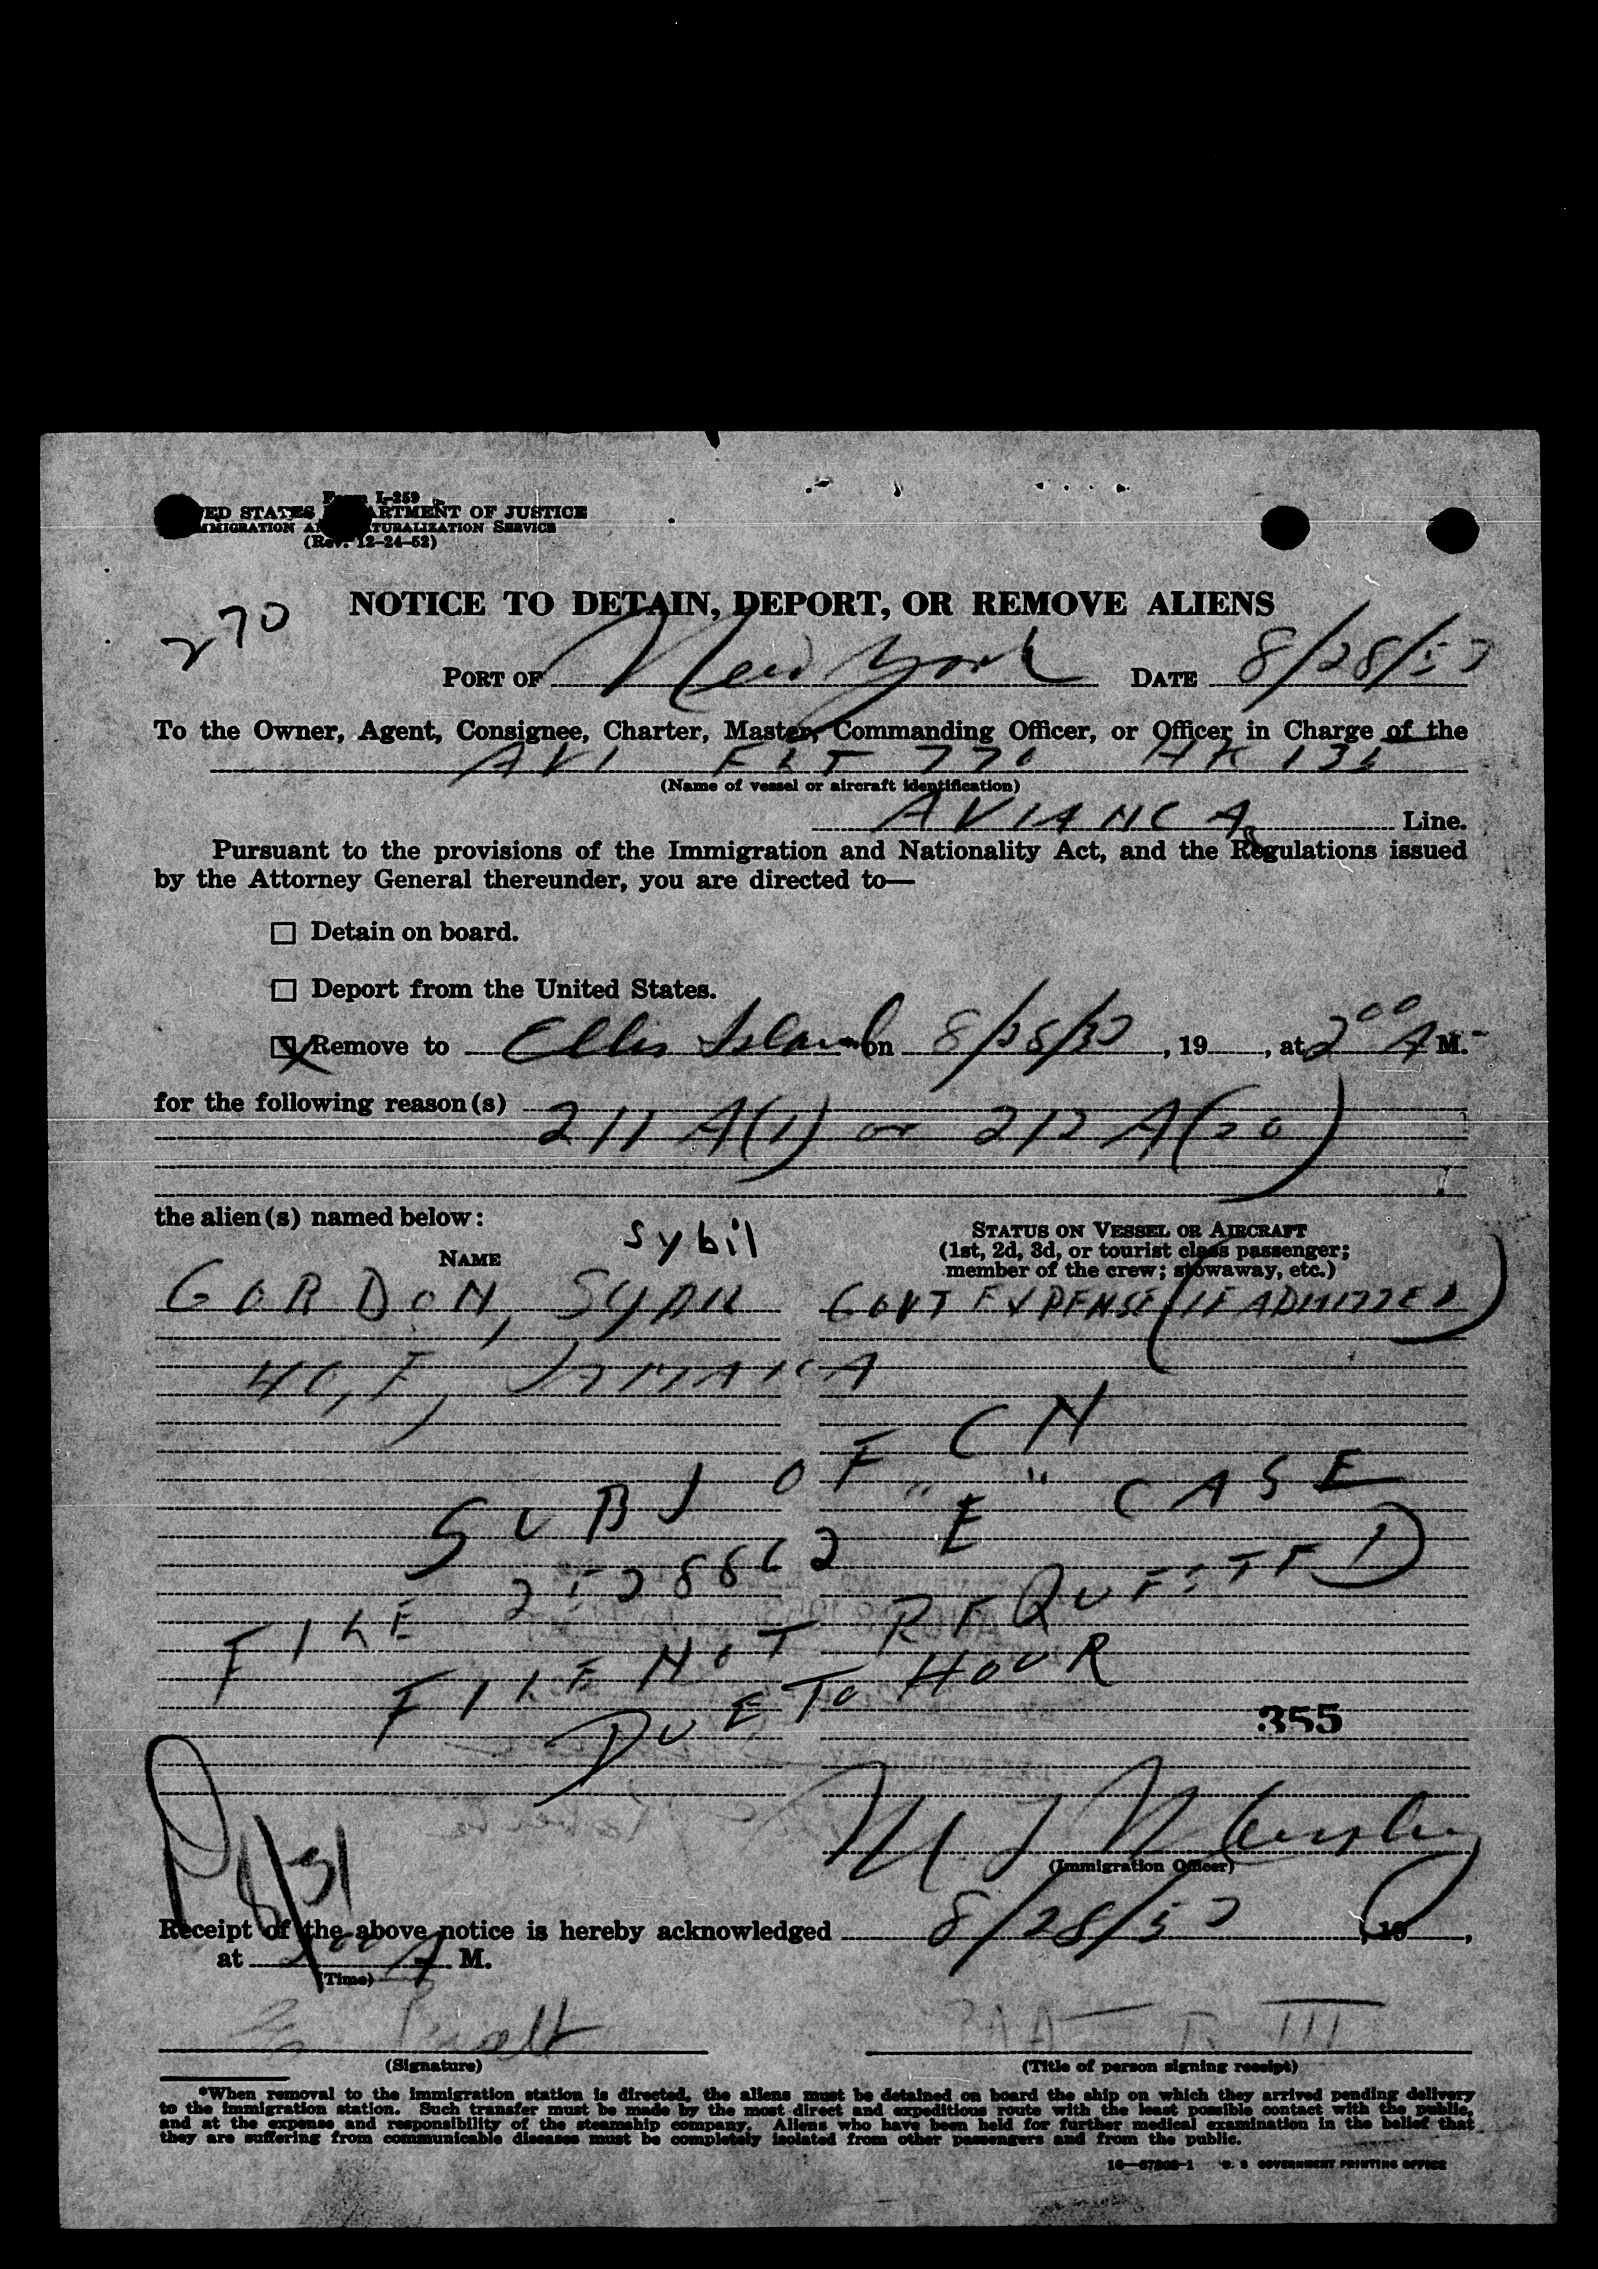 Form I-259
UNITED STATES DEPARTMENT OF JUSTICE
IMMIGRATION AND NATURALIZATION SERVICE
(Rev. 12-24-52)
270
NOTICE TO DETAIN, DEPORT, OR REMOVE ALIENS
PORT OF New York DATE 8/28/53
To the Owner, Agent, Consignee, Charter, Master, Commanding Officer, or Officer in Charge of the
AVI FLT 770 HK 136
(Name of vessel or aircraft identification)
AVIANCA Line.
Pursuant to the provisions of the Immigration and Nationality Act, and the Regulations issued
by the Attorney General thereunder, you are directed to—
Detain on board.
Deport from the United States.
Remove to Ellis Island on 8/28/53, 19, at 2 00 A M.
for the following reason(s)
211 A(1) or 212 A(20)
the alien(s) named below:
Sybil
NAME
STATUS ON VESSEL OR AIRCRAFT
(1st, 2d, 3d, or tourist class passenger;
member of the crew; stowaway, etc.)
GORDON, GOVT EXPENSE (IF ADMITTED)
F, JAMAICA
SUBJ OF CN
"E" CASE
FILE
FILE NOT REQUESTED
DUE TO HOUR
355
(Immigration Officer)
Receipt of the above notice is hereby acknowledged 8/28/53, 19,
at 200 A M.
(Time)
(Signature)
(Title of person signing receipt)
*When removal to the immigration station is directed, the aliens must be detained on board the ship on which they arrived pending delivery
to the immigration station. Such transfer must be made by the most direct and expeditious route with the least possible contact with the public,
and at the expense and responsibility of the steamship company. Aliens who have been held for further medical examination in the belief that
they are suffering from communicable diseases must be completely isolated from other passengers and from the public.
U. S. GOVERNMENT PRINTING OFFICE